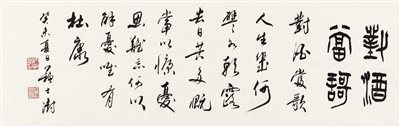 對酒
當謌
對酒當歌
人生幾何
譬如朝露
去日苦多慨
當以慷憂
思難忘何以
解憂唯有
杜康
癸未夏日蘇士澍